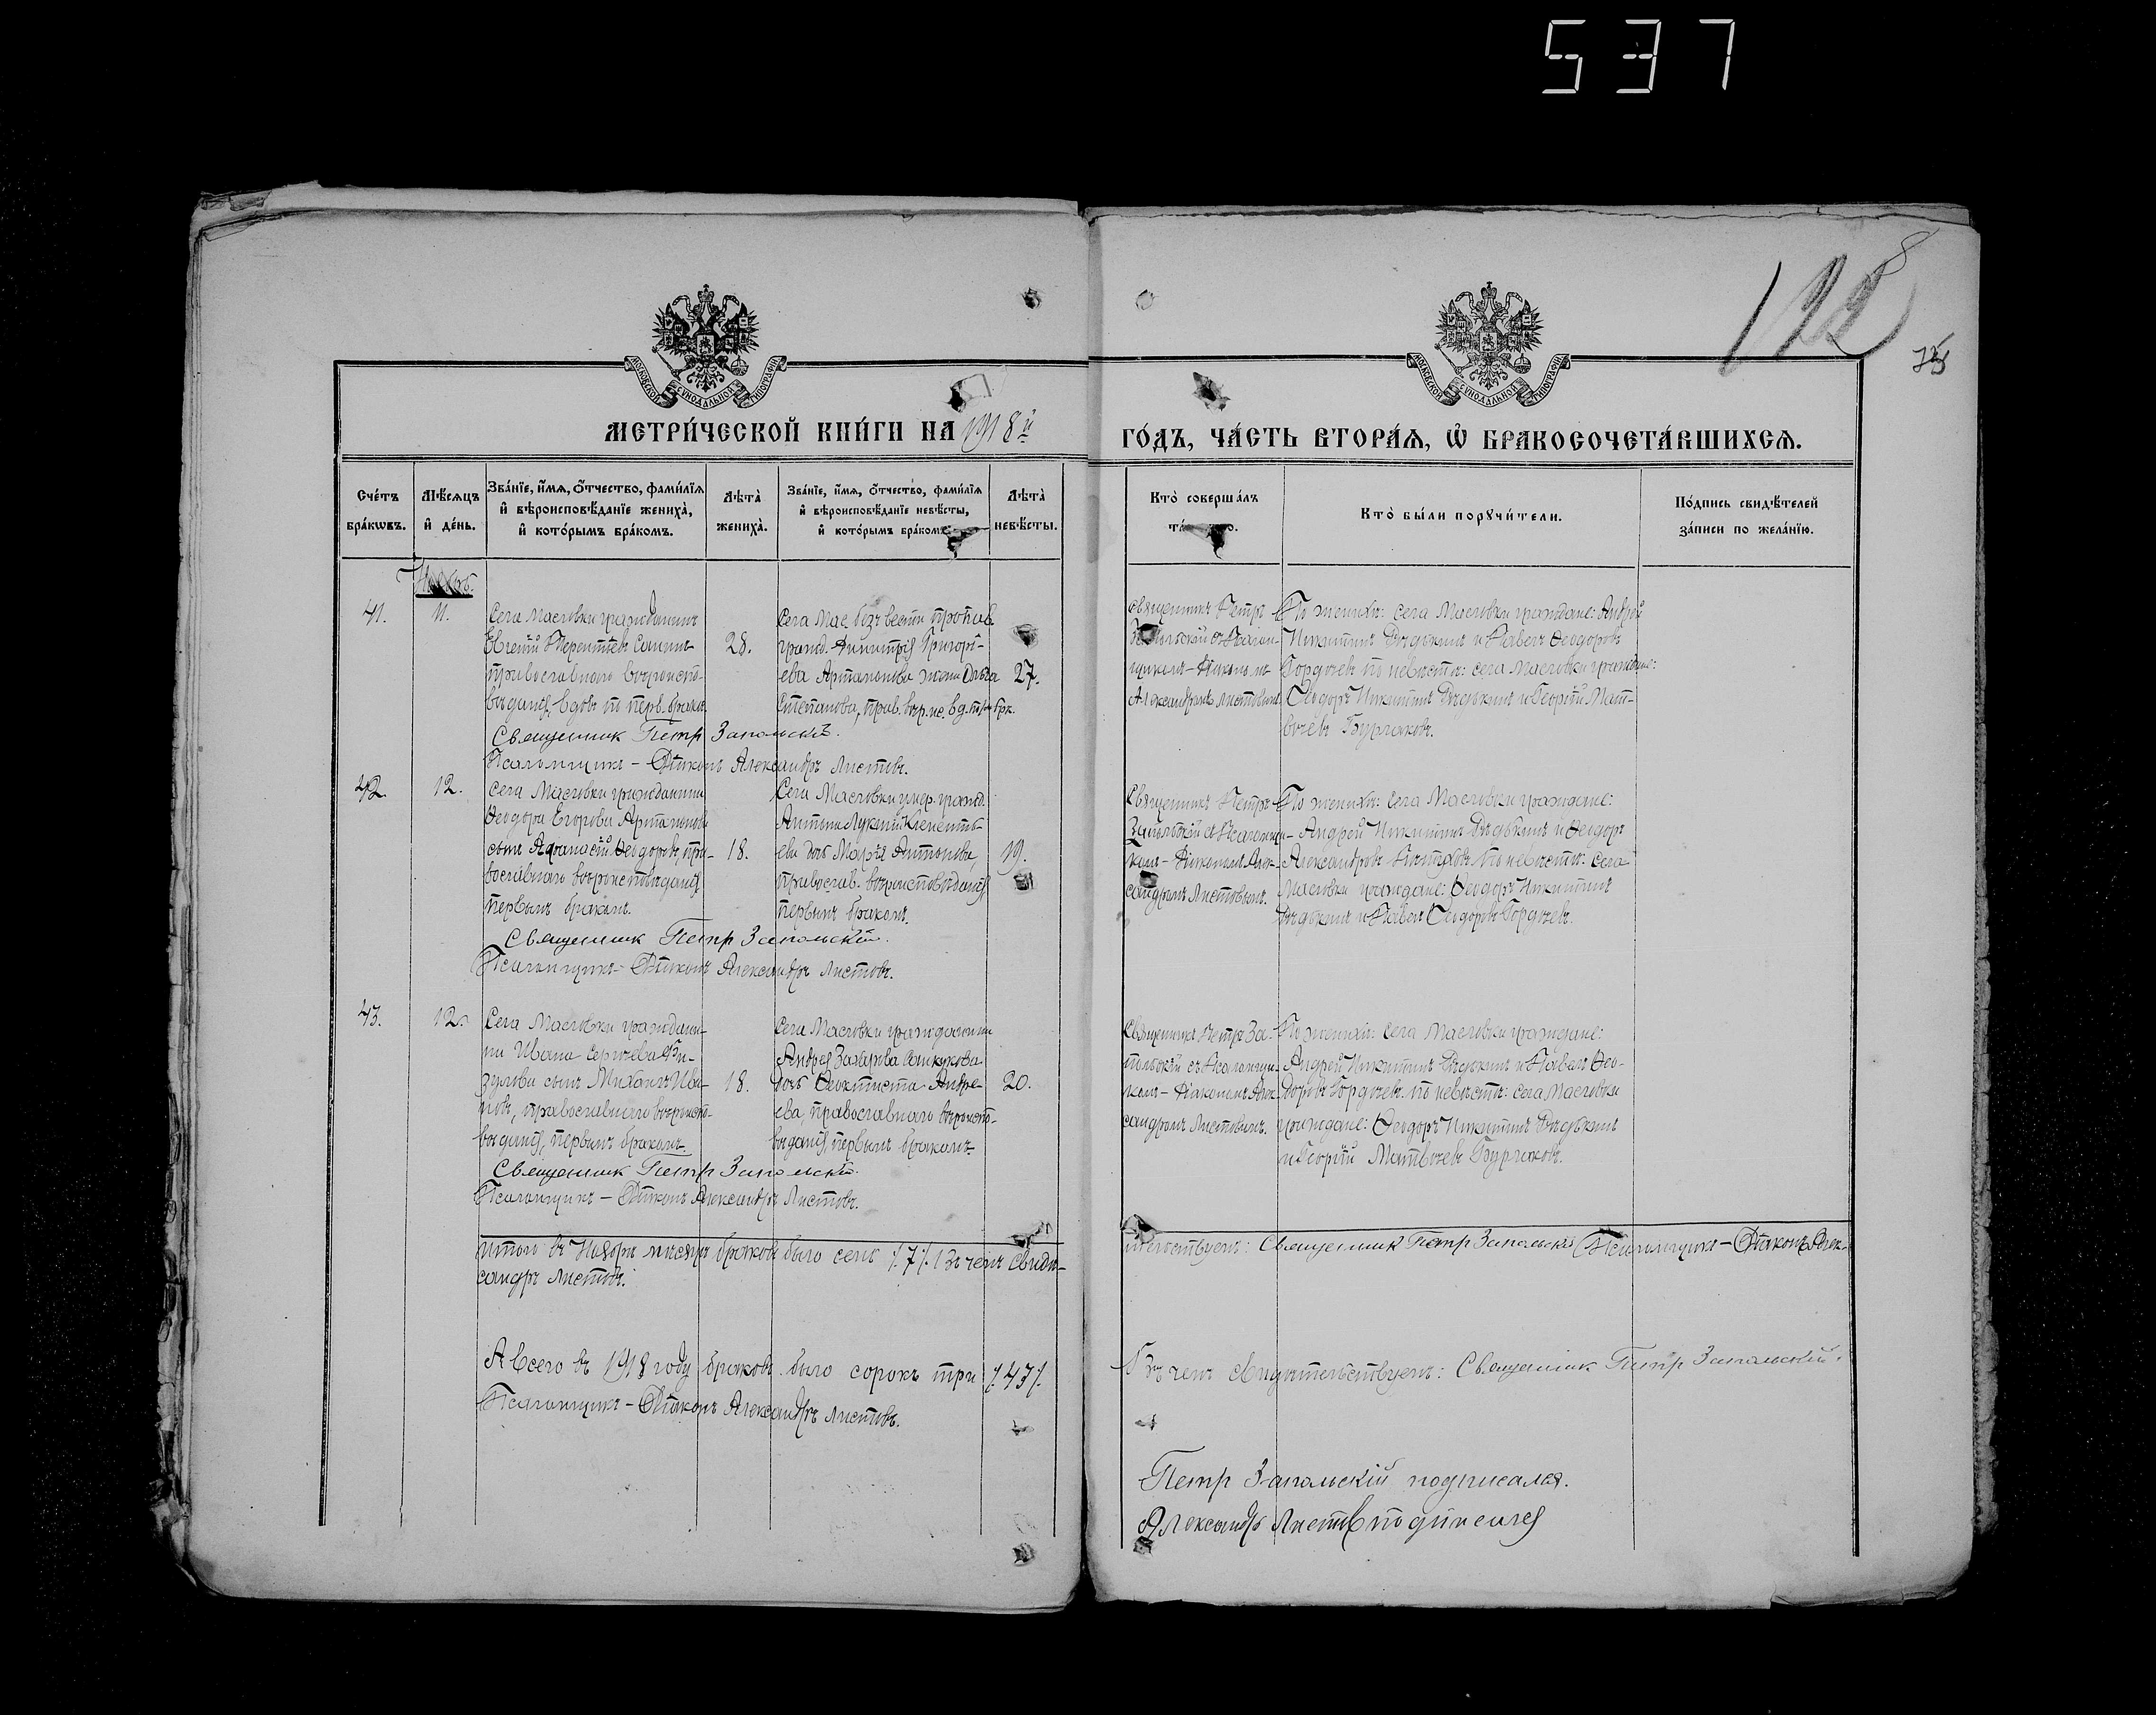 537
128
75
МОСКОВСКОЙ СѴНОДАЛЬНОЙ ТИПОГРАФІИ
МОСКОВСКОЙ СѴНОДАЛЬНОЙ ТИПОГРАФІИ
МЕТРИ́ЧЕСКОЙ КНИ́ГИ НА 1918й
ГО́ДЪ, ЧА́СТЬ ВТОРА́Я, Ѡ БРАКОСОЧЕТА́ВШИХСЯ.
Сче́тъ бра́кѡвъ.
Мѣ́сяцъ и҆ де́нь.
Зва́нїе, и҆́мя, ѻ҆́тчество, фами́лїя и҆ вѣроисповѣ́данїе жениха̀, и҆ кото́рымъ бра́комъ.
Лѣта̀ жениха̀.
Зва́нїе, и҆́мя, ѻ҆́тчество, фами́лїя и҆ вѣроисповѣ́данїе невѣ́сты, и҆ кото́рымъ бра́комъ.
Лѣта̀ невѣ́сты.
Кто̀ соверша́лъ
Кто̀ бы́ли порꙋчи́тели.
По́дпись свидѣ́телей за́писи по жела́нїю.
41.
11.
Села Масловки гражданинъ
православнаго вѣроиспо-
вѣданія, вдовъ по перв. бракѣ
28.
Села Мас. безъ вести пропав.
гражд. Димитрія Григорі-
ева Артамонова жена Ольга
Степанова, прав.
27.
Священникъ Петръ
Запольскій съ Псалом-
щикомъ-Діакономъ
Александромъ Листовымъ
По женихѣ: села Масловки граждане: Андрей
Никитинъ Дѣдыкинъ и Павелъ Ѳеодоровъ
Гордѣевъ по невѣстѣ: села Масловки граждане:
Ѳеодоръ Никитинъ Дѣдыкинъ и Георгій Мат-
вѣевъ Бурлаковъ.
Священник Петр Запольскій.
Псаломщикъ - Діаконъ Александръ Листовъ.
42.
12.
Села Масловки гражданина
Ѳеодора Егорова Артамонова
сынъ Аѳанасій Ѳеодоровъ, пра-
вославнаго вѣроисповѣданія
первымъ бракомъ.
18.
Села Масловки умер. гражд.
ева дочь Марѳа Антонова,
православ. вѣроисповѣданія
первымъ бракомъ.
19.
Священникъ Петръ
Запольскій съ Псаломщи-
комъ - Діакономъ Алек-
сандромъ Листовымъ.
По женихѣ: села Масловки граждане:
Андрей Никитинъ Дѣдыкинъ и Ѳеодоръ
Александровъ по невѣстѣ: села
Масловки граждане: Ѳеодоръ Никитинъ
Дѣдыкинъ и Павелъ Ѳеодоровъ Гордѣевъ.
Священник Петр Запольскій.
Псаломщикъ - Діаконъ Александръ Листовъ.
43.
12.
Села Масловки граждани-
на Ивана Сергѣева Фи-
зулова сынъ Михаилъ Ива-
новъ, православнаго вѣроиспо-
вѣданія, первымъ бракомъ.
18.
Села Масловки гражданина
Андрея Захарова
дочь Ѳеоктиста Андре-
ева, православнаго вѣроиспо-
вѣданія, первымъ бракомъ
20.
Священникъ Петръ За-
польскій съ Псаломщи-
комъ - Діакономъ Алек-
сандромъ Листовымъ.
По женихѣ: села Масловки граждане:
Андрей Никитинъ Дѣдыкинъ и Павелъ Ѳео-
доровъ Гордѣевъ. по невѣстѣ: села Масловки
граждане: Ѳеодоръ Никитинъ Дѣдыкинъ
и Георгій Матвѣевъ Бурлаковъ.
Священник Петр Запольскій.
Псаломщикъ - Діаконъ Александръ Листовъ.
Итого въ Ноябрѣ мѣсяцѣ браковъ было семь /.7/. Въ чемъ свидѣ-
тельствуемъ: Священник Петр Запольскій Псаломщикъ - Діаконъ Алек-
сандръ Листовъ.
А всего въ 1918 году браковъ было сорокъ три /.43/.
Въ чемъ свидѣтельствуемъ: Священник Петр Запольскій.
Псаломщикъ - Діаконъ Александръ Листовъ.
Петр Запольскій подписался.
Александръ Листовъ подписался